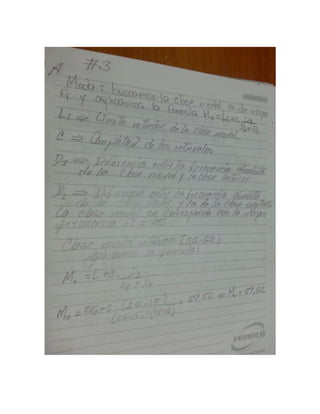 A #3
Moda: buscamos la clase modal, la de mayor
fi y aplicamos la formula Mo = Li + C. D1
D1 + D2
Li => Limite inferior de la clase modal
C => Amplitud de los intervalos
D1 => Diferencia entre la frecuencia absoluta
de la clase modal y la clase anterior
D2 => Diferencia entre la frecuencia absoluta
de la clase modal y la de la clase siguiente
La clase modal se corresponde con la mayor
frecuencia
Clase modal intervalo [56-62)
aplicamos la formula:
Mo = L +
Mo = 56+6 = 59,52 => Mo = 59,52
venoco